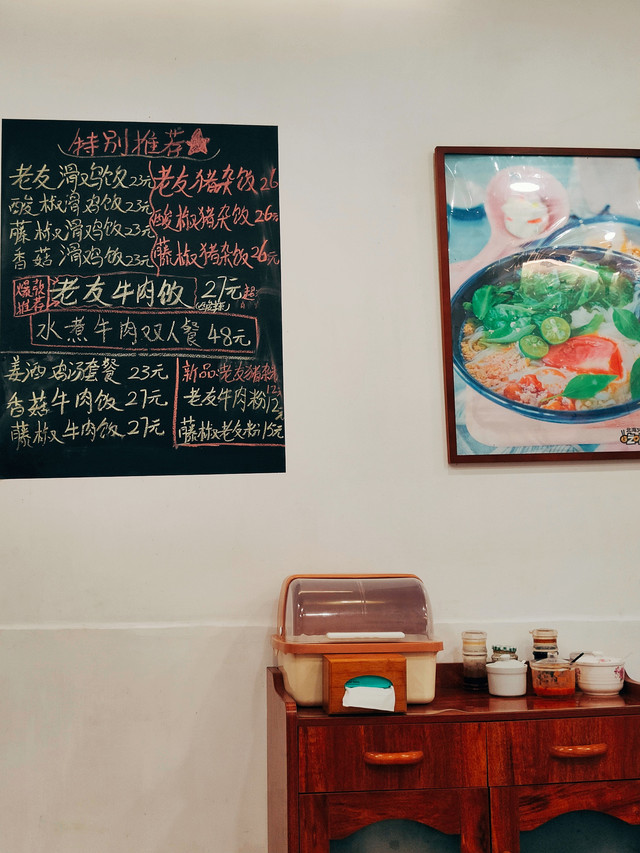 特别推荐
老友滑鸡饭23元
酸椒滑鸡饭23元
藤椒滑鸡饭23元
香菇滑鸡饭23元
老友猪杂饭26
酸椒猪杂饭26元
藤椒猪杂饭26元
爆款推荐
老友牛肉饭 27元
水煮牛肉双人餐 48元
姜酒鸡汤套餐 23元
香菇牛肉饭27元
藤椒牛肉饭27元
新品:老友猪杂粉12元
老友牛肉粉12元
藤椒老友粉15元